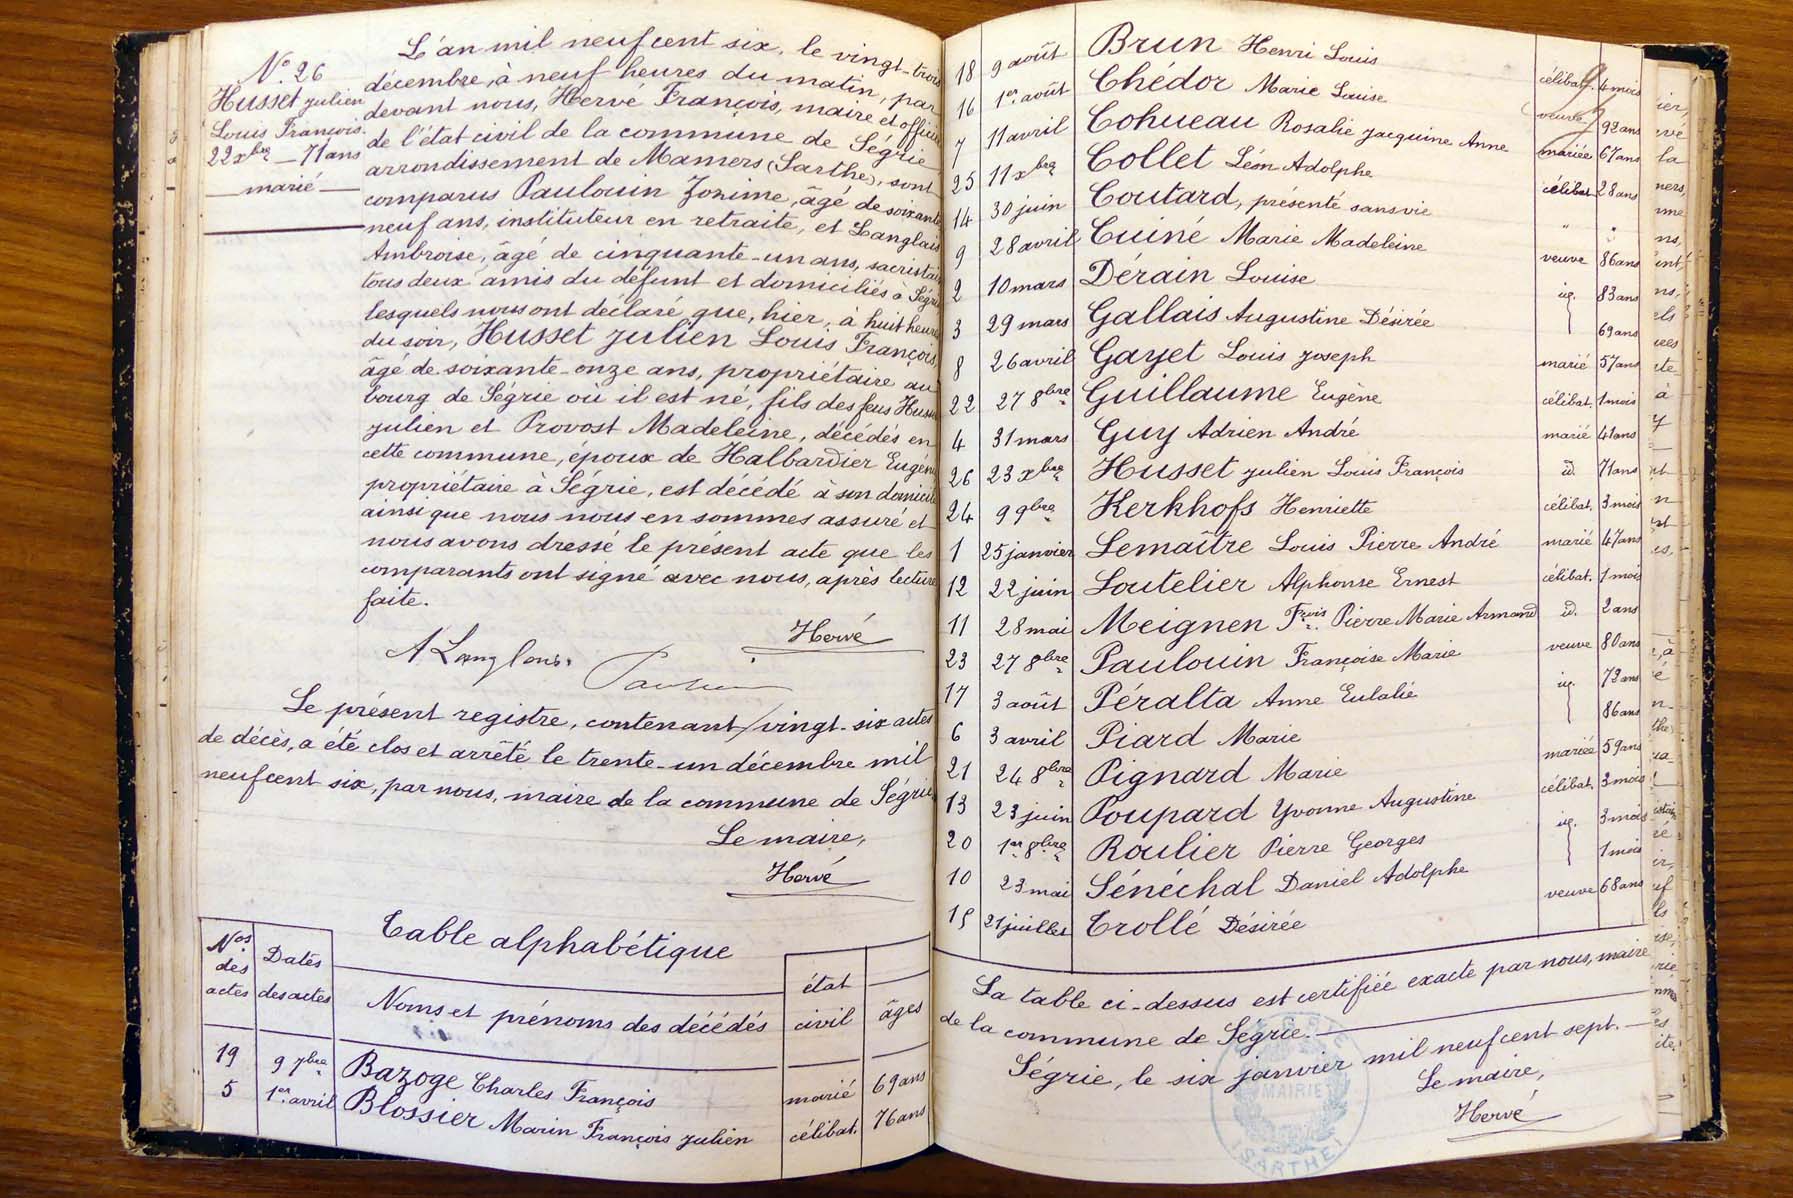 N.º 26
Husset Julien
Louis François.
22 xbre — 71 ans
marié
L'an mil neuf cent six, le vingt-trois
décembre, à neuf heures du matin, par
devant nous, Hervé François, maire et officier
de l'état civil de la commune de Ségrie
arrondissement de Mamers (Sarthe), sont
comparus Paulouin Zozime, âgé de soixante
neuf ans, instituteur en retraite, et Langlais
Ambroise, âgé de cinquante-un ans, sacristain
tous deux amis du défunt et domiciliés à Ségrie
lesquels nous ont déclaré que, hier, à huit heures
du soir, Husset Julien Louis François,
âgé de soixante-onze ans, propriétaire au
bourg de Ségrie où il est né, fils des feus Husset
Julien et Provost Madeleine, décédés en
cette commune, époux de Halbardier Eugénie
propriétaire à Ségrie, est décédé à son domicile
ainsi que nous nous en sommes assuré et
nous avons dressé le présent acte que les
comparants ont signé avec nous, après lecture
faite.
Hervé
A Langlais.
Le présent registre, contenant vingt-six actes
de décès, a été clos et arrêté le trente-un décembre mil
neuf cent six, par nous, maire de la commune de Ségrie
Le maire,
Hervé
Table alphabétique
Nos des actes Dates des actes Noms et prénoms des décédés état civil âges
19 9 7bre Bazoge Charles François marié 69 ans
5 1er avril Blossier Marin François Julien célibat. 76 ans
18 9 août Brun Henri Louis célibat. 4 mois
16 1er août Chédor Marie Louise veuve 92 ans
7 11 avril Cohueau Rosalie Jacquine Anne mariée 67 ans
25 11 xbre Collet Léon Adolphe célibat 28 ans
14 30 juin Coutard, présenté sans vie " "
9 28 avril Cuiné Marie Madeleine veuve 86 ans
2 10 mars Dérain Louise id. 83 ans
3 29 mars Gallais Augustine Désirée 69 ans
8 26 avril Gayet Louis Joseph marié 57 ans
22 27 8bre Guillaume Eugène célibat. 1 mois
4 31 mars Guy Adrien André marié 41 ans
26 23 xbre Husset Julien Louis François id. 71 ans
24 9 9bre Kerkhofs Henriette célibat. 3 mois
1 25 janvier Lemaître Louis Pierre André marié 47 ans
12 22 juin Loutelier Alphonse Ernest célibat. 1 mois
11 28 mai Meignen Fçois Pierre Marie Armand id. 2 ans
23 27 8bre Paulouin Françoise Marie veuve 80 ans
17 3 août Péralta Anne Eulalie id. 72 ans
6 3 avril Piard Marie 86 ans
21 24 8bre Pignard Marie mariée 59 ans
13 23 juin Poupard Yvonne Augustine célibat. 2 mois
20 1er 8bre Roulier Pierre Georges id. 3 mois
10 23 mai Sénéchal Daniel Adolphe 1 mois
15 21 juillet Trollé Désirée veuve 68 ans
La table ci-dessus est certifiée exacte par nous, maire
de la commune de Ségrie.
Ségrie, le six janvier mil neuf cent sept.
Le maire,
Hervé
MAIRIE
(SARTHE)